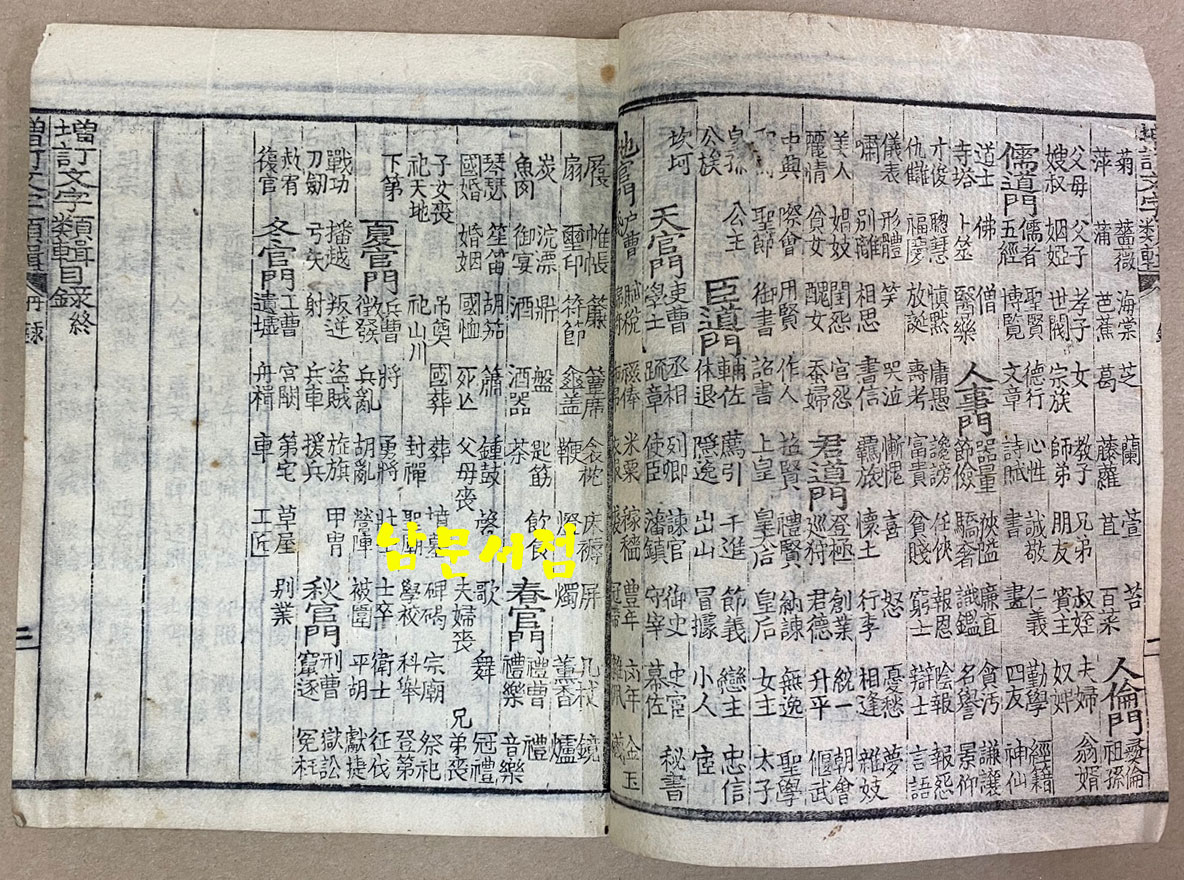 菊 薔薇 海棠 芝 蘭 萱 苔 人倫門 彛倫
萍 蒲 芭蕉 葛 藤蘿 苴 百采 祖孫
父母 父子 孝子 女 教子 兄弟 叔姪 夫婦 翁婿
嫂叔 姻婭 世閥 宗族 師弟 朋友 賓主 奴婢
儒道門 儒者 聖賢 德行 心性 誠敬 仁義 勤學 經籍
五經 博覽 文章 詩賦 書 畫 四友 神仙
道士 佛 僧 人事門 器量 俠隘 廉直 貪汚 謙讓
寺塔 卜筮 醫藥 節儉 驕奢 識鑑 名譽 景仰
才俊 聰慧 愼默 庸愚 讒謗 任俠 報恩 陰報 報怨
仇讎 福慶 放誕 壽考 富貴 貧賤 窮士 辯士 言語
儀表 形體 笑 哭泣 慚愧 喜 怒 憂愁 夢
嘯 別離 相思 書信 羈旅 懷土 行李 相逢 雜妓
美人 娼妓 閨怨 宮怨 君道門 登極 創業 統一 朝會
麗情 貧女 醜女 蚕婦 巡狩 君德 升平 偃武
中興 際會 用賢 作人 招賢 禮賢 納諫 無逸 聖學
聖節 御書 詔書 上皇 皇后 皇后 女主 太子
皇孫 公主 臣道門 輔佐 薦引 千進 節義 戀主 忠信
公族 休退 隱逸 出山 冒據 小人 宦
坎坷 天官門 吏曹 丞相 列卿 諫官 御史 史宦 秘書
學士 疏章 使臣 藩鎭 守宰 幕佐
地官門 戶曹 賦稅 祿俸 米粟 稼穡 豊年 金玉
屐 帷帳 簾 簟席 衾枕 床褥 屏 几杖 鏡
扇 璽印 符節 傘盖 鞭 燈 燭 薰香 爐
炭 浣漂 鼎 盤 匙筯 飲食 春官門 禮曹 禮
魚肉 御宴 酒 酒器 茶 禮樂 音樂
琴瑟 笙笛 胡茄 簫 鍾鼓 歌 舞 冠禮
國婚 婚姻 國恤 死亡 父母喪 夫婦喪 兄弟喪
子女喪 吊奠 國葬 葬 墳墓 碑碣 宗廟 祭祀
祀天地 祀山川 封禪 聖朝 學校 科舉 登第
下第 夏官門 兵曹 將 勇將 壯士 士卒 衛士 征伐
徵發 兵亂 胡亂 營陣 被圍 平胡 獻捷
戰功 播越 叛逆 盜賊 旌旗 甲冑 秋官門 刑曹 獄訟
刀劒 弓矢 射 兵車 援兵 竄逐 冤枉
赦宥 冬官門 工曹 宮闕 第宅 草屋 別業
復官 遺墟 舟楫 車 工匠
增訂文字類輯目錄終
增訂文字類輯 目錄 二
남문서점